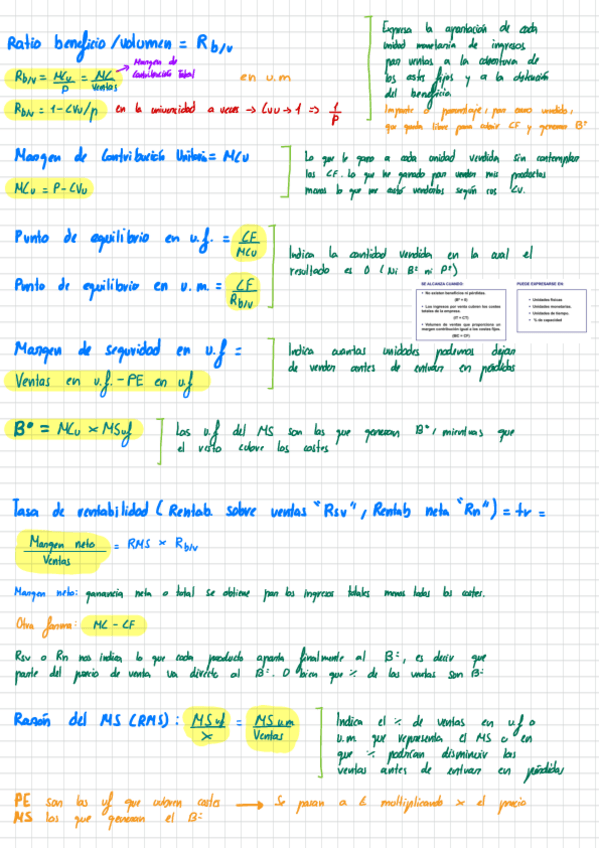 Ratio beneficio/volumen = R b/v
Expresa la aportación de cada
unidad monetaria de ingresos
por ventas a la cobertura de
los costes fijos y a la obtención
del beneficio.
Margen de
Contribución Total
Rb/v = MCu/P = MC/Ventas
en u.m
Importe o porcentaje, por euro vendido,
que queda libre para cubrir CF y generar Bº
Rb/v = 1-CVu/p en la universidad a veces → CVu → 1 => 1/P
Margen de Contribución Unitario = MCu
Lo que le gano a cada unidad vendida sin contemplar
los CF. Lo que he ganado por vender mis productos
menos lo que me costó venderlos según los CV.
MCu = P-CVu
Punto de equilibrio en u.f. = CF/MCu
Indica la cantidad vendida en la cual el
resultado es 0 (Ni Bº ni Pº)
Punto de equilibrio en u.m. = CF/Rb/v
SE ALCANZA CUANDO:
• No existen beneficios ni pérdidas.
(Bº = 0)
• Los ingresos por venta cubren los costes
totales de la empresa.
(IT = CT)
• Volumen de ventas que proporciona un
margen contribución igual a los costes fijos.
(MC = CF)
PUEDE EXPRESARSE EN
• Unidades físicas
• Unidades monetarias.
• Unidades de tiempo.
• % de capacidad
Margen de seguridad en u.f =
Ventas en u.f. - PE en u.f
Indica cuantas unidades podemos dejar
de vender antes de entrar en pérdidas
Bº = MCu x MSuf
Las u.f del MS son las que generan Bº, mientras que
el resto cubre los costes
Tasa de rentabilidad (Rentab. sobre ventas "Rsv", Rentab neta "Rn") = tr =
Margen neto/Ventas = RMS x Rb/v
Margen neto: ganancia neta o total se obtiene por los ingresos totales menos todos los costes.
Otra forma: MC - CF
Rsv o Rn nos indica lo que cada producto aporta finalmente al Bº, es decir que
parte del precio de venta va directo al Bº. O bien que % de las ventas son Bº
Razón del MS (RMS): MS uf/x = MS u.m/Ventas
Indica el % de ventas en u.f o
u.m. que representa el MS o en
que % podrían disminuir las
ventas antes de entrar en pérdidas
PE son las uf que cubren costes → Se pasan a € multiplicando x el precio
MS los que generan el Bº